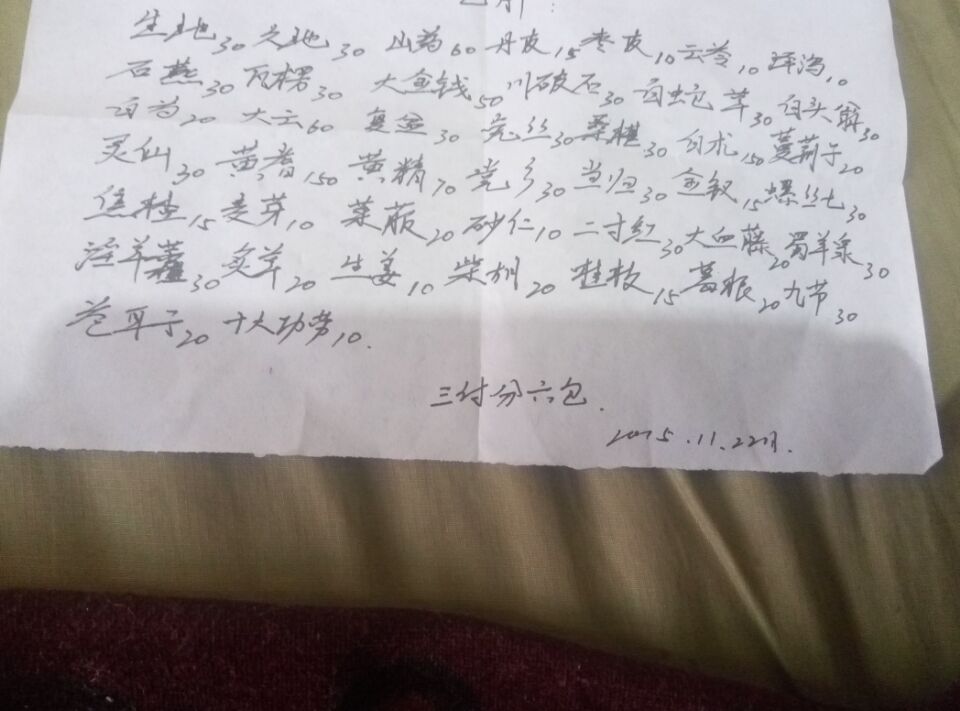 生地30 久地30 山药60 丹皮15 枣皮10 云苓10 泽泻10
石燕30 瓦楞30 大金钱50 川破石30 白蛇草30 白头翁30
白芍20 大云60 复盆30 菟丝30 桑椹30 白术150 蔓荆子20
灵仙30 黄耆150 黄精70 党参30 当归30 金钗15 螺丝七30
焦楂15 麦芽10 莱菔20 砂仁10 二寸红30 大血藤20 蜀羊泉30
淫羊藿30 炙草20 生姜10 柴胡20 桂枝15 葛根20 九节30
苍耳子20 十大功劳10.
三付分六包.
2015.11.22日.